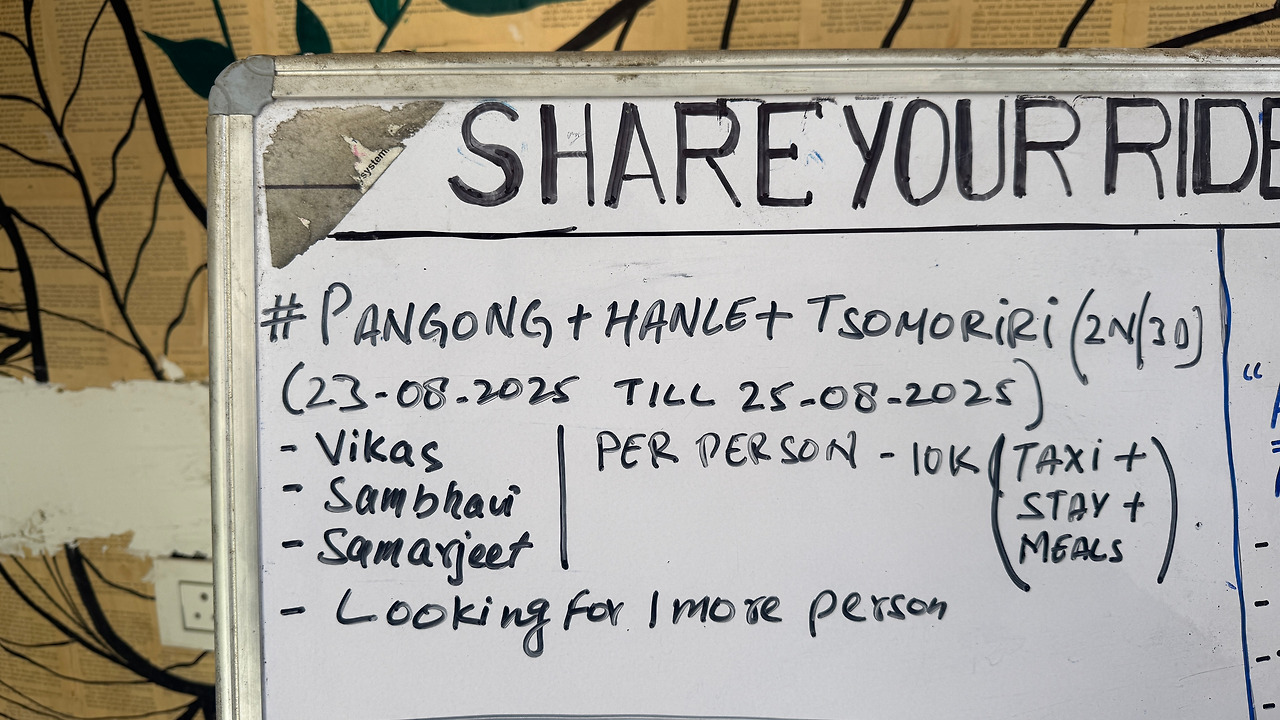 SHARE YOUR RIDE
system
# PANGONG + HANLE + TSOMORIRI (2N/3D)
(23-08-2025 TILL 25-08-2025)
- Vikas
- Sambhavi
- Samarjeet
PER PERSON - 10K (TAXI +
STAY +
MEALS)
- Looking for 1 more person